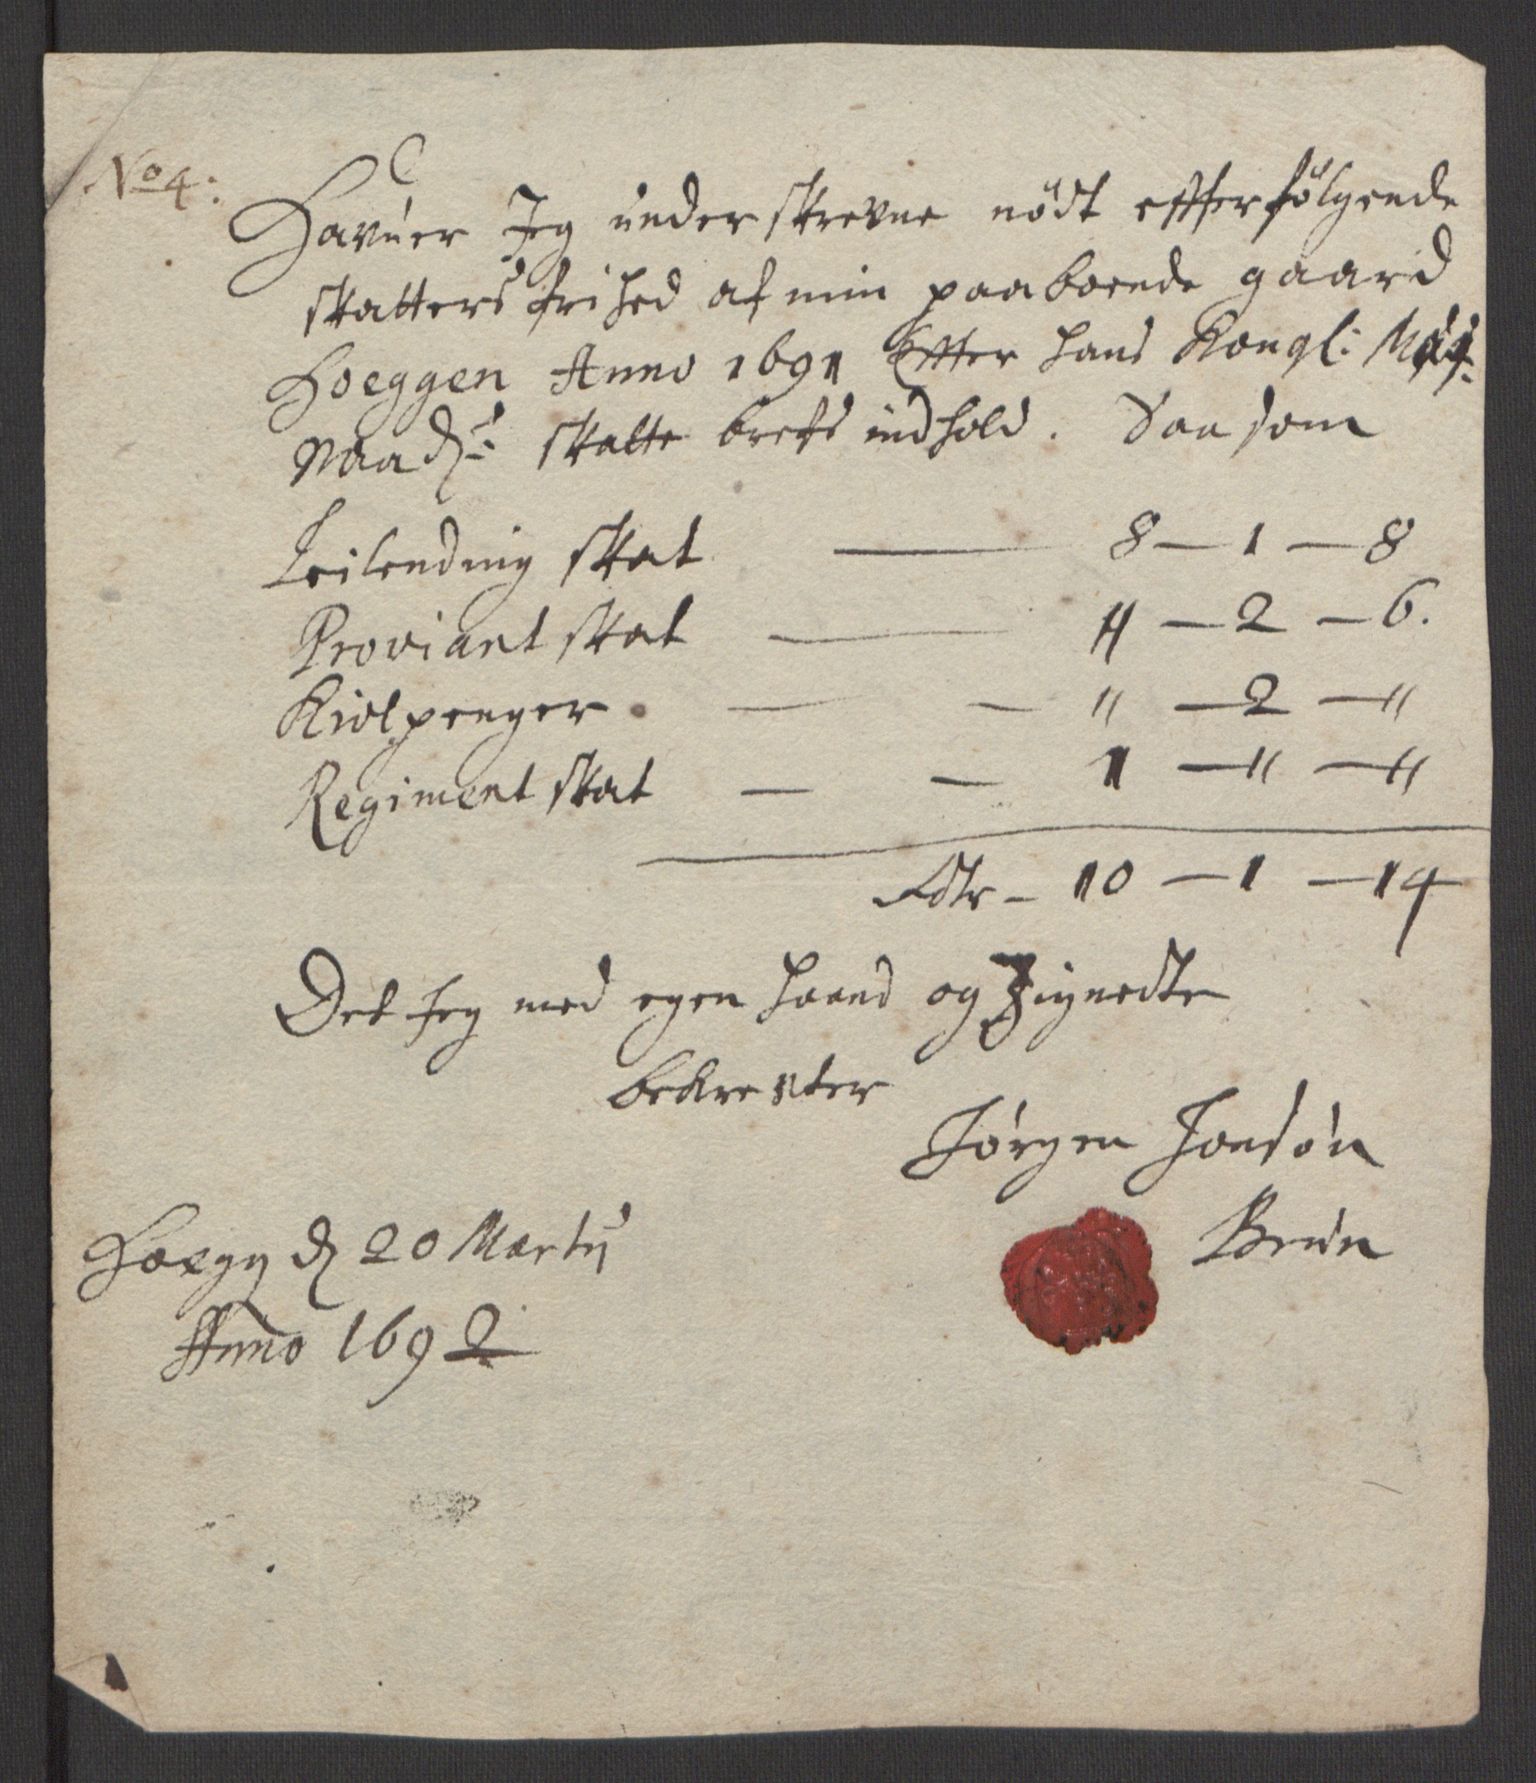 No 4:
Havuer Jeg under skrevne nödt effterfölgende
skatters frihed af min paaboende gaard
Hoeggen Anno 1691 Effter hans Kongl: Mays:
Naad:s skatte brefs indhold. Saa som
Leilending skat — 8 — 1 — 8
Proviant skat — " — 2 — 6.
Kiolpenger — — " — 2 — "
Regiment skat — — 1 — " — "
Rdlr — 10 — 1 — 14
Det Jeg med egen haand og Zignedte
bekrefter
Jörgen Jonsön
Brun
Hoegg d 20 Martij
Anno 1692